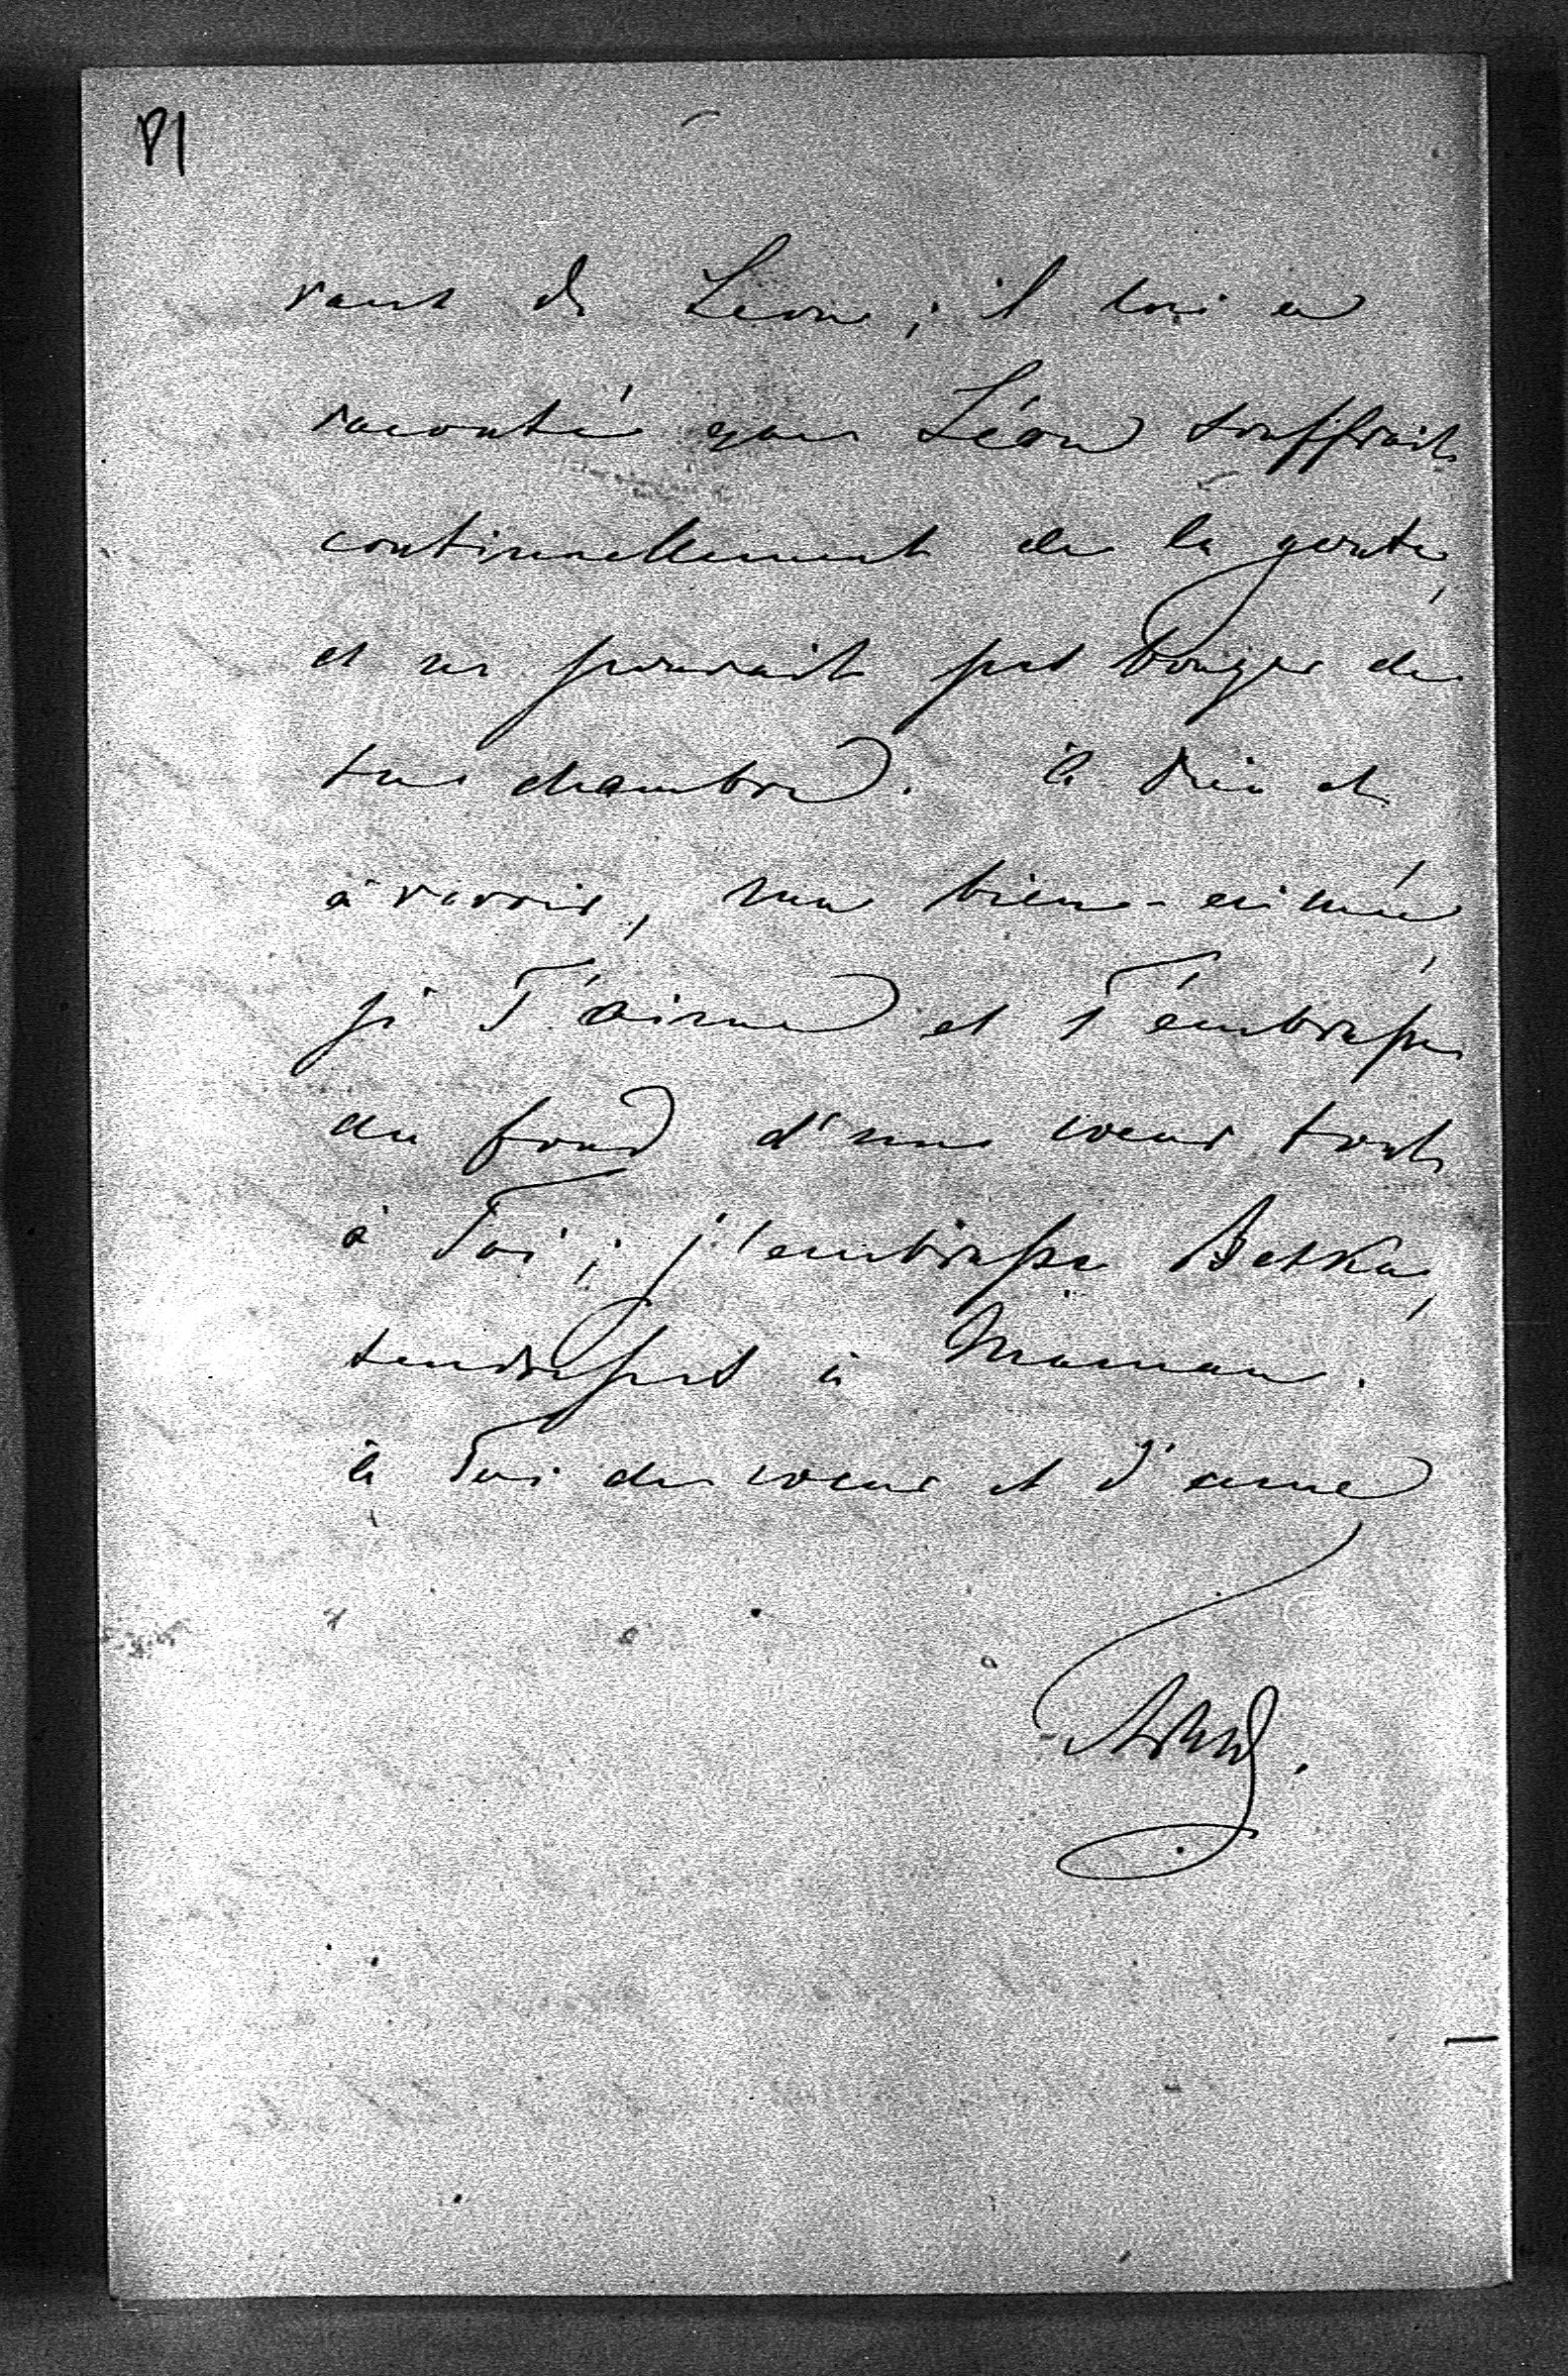 vant de Léon ; il lui a
raconté que Léon souffrait
continuellement de la goute
et ne pouvait pas bouger de
sa chambre. à Dieu et
à revoir, ma bien-aimée,
je T'aime et T'embrasse
du fond d'un coeur tout
à Toi ; j'embrasse Betka,
tendresses à Maman.
à Toi de coeur et d'ame